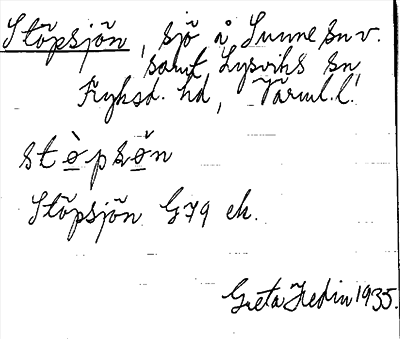 Stöpsjön, sjö å Sunne sn v.
samt Lysviks sn,
Fryksd. hd, Värml. l.
stø̀psøn
Stöpsjön G79 ek.
Greta Hedin 1935.